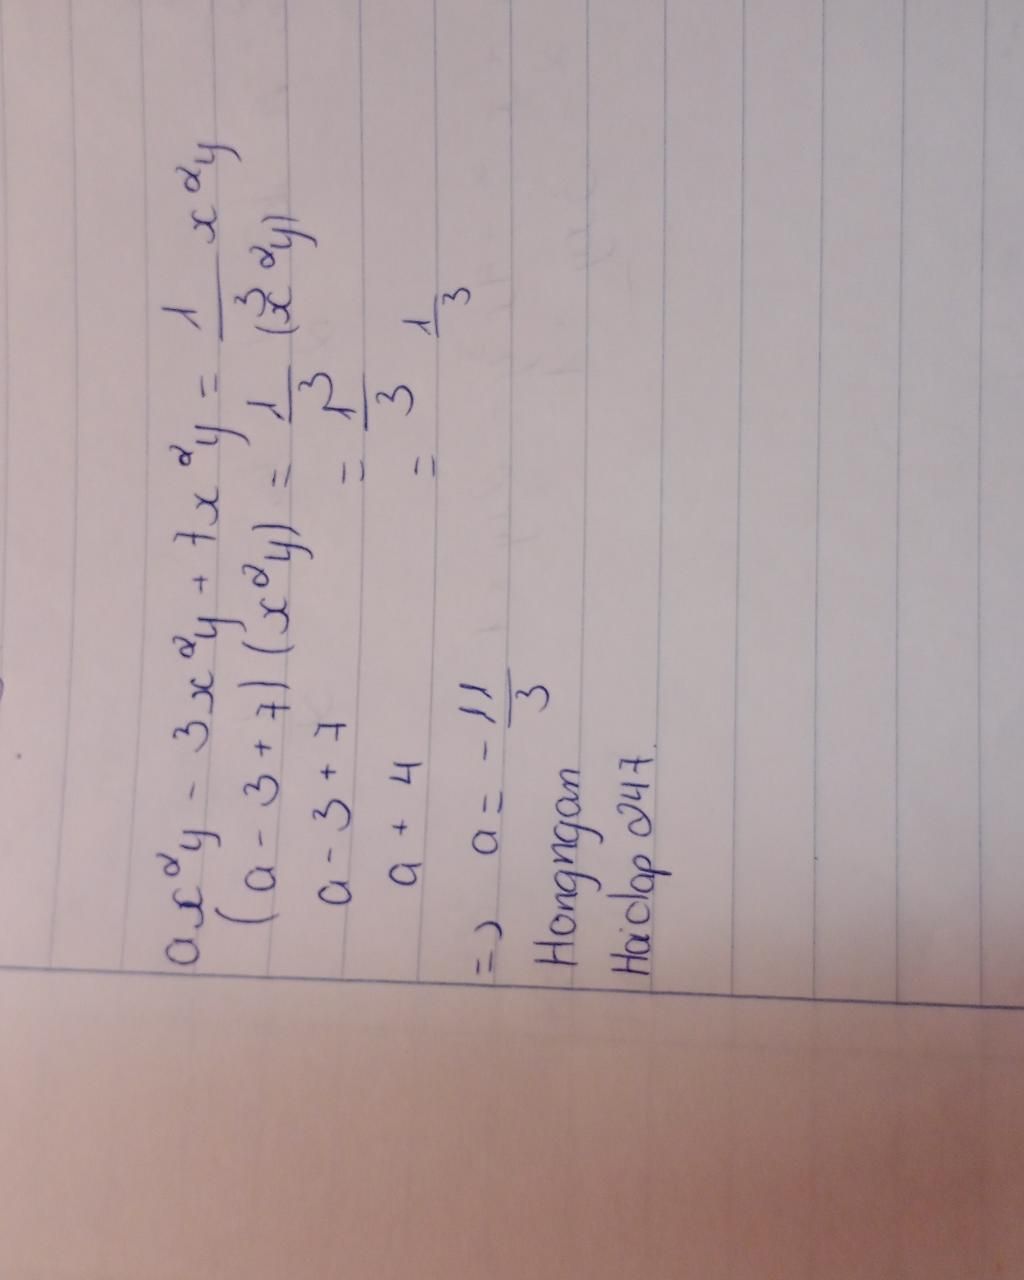 ax²y - 3x²y + 7x²y = 1/3 x²y
(a - 3 + 7)(x²y) = 1/3 (x²y)
a - 3 + 7 = 1/3
a + 4 = 1/3
=> a = - 11/3
Hongngan
Haiclop 247